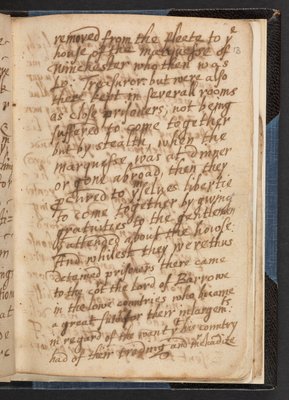 removed from the Fleete to yᵉ
13
house of the marquesse of
Winchester who then was
Lo: Treasuror but were also
there kept in severall rooms
as close prisoners, not being
suffered to come together
but by stealth, when the
marquesse was at dinner
or gone abroad, then they
pcured to yᵐselves libertie
to come together by gyving
gratuities to the gentlemen
yᵗ attended about the house.
And whilest they were thus
detained prisoners there came
to the cot the Lord of Barrowe
in the Lowe countries who became
a great suitor for their inlargemᵗ:
in regard of the want yᵗ his country
had of their treding and the